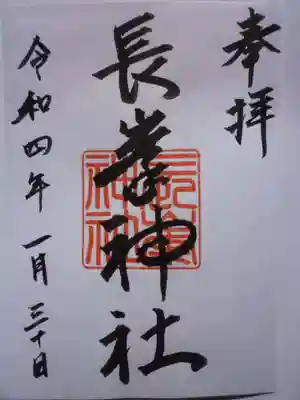 奉拝
長峯神社
令和四年 一月三十日